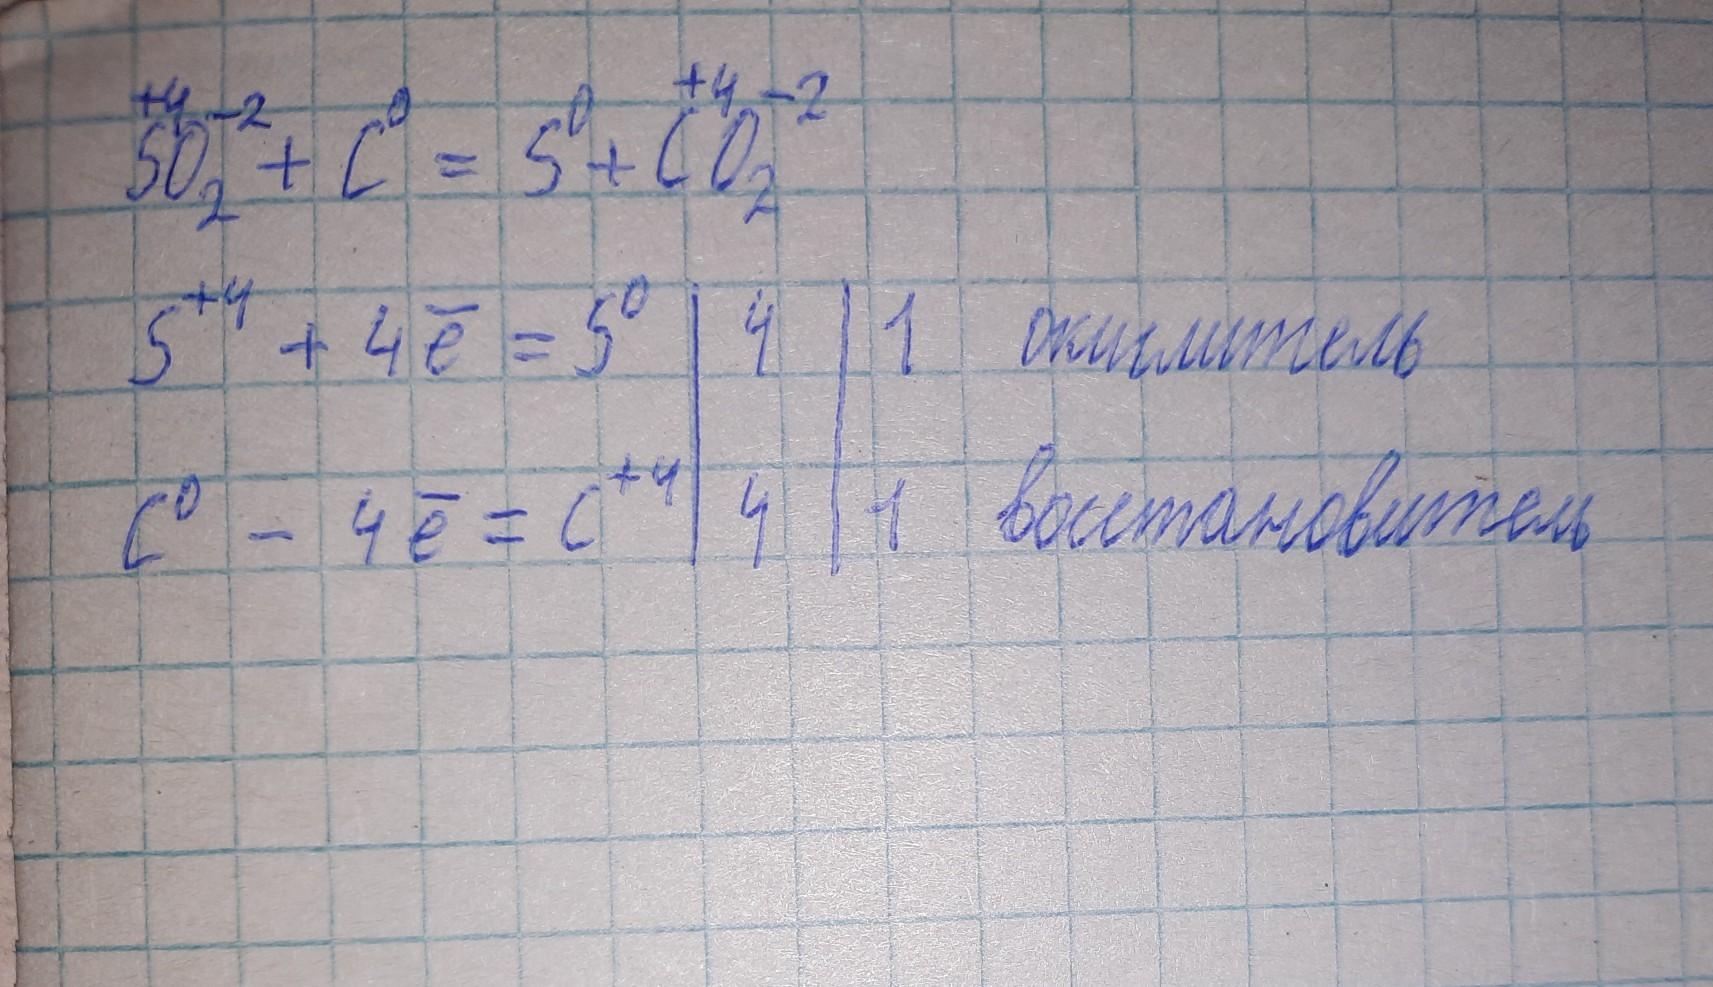 S⁺⁴O₂⁻² + C⁰ = S⁰ + C⁺⁴O₂⁻²
S⁺⁴ + 4ē = S⁰ | 4 | 1 окислитель
C⁰ - 4ē = C⁺⁴ | 4 | 1 восстановитель